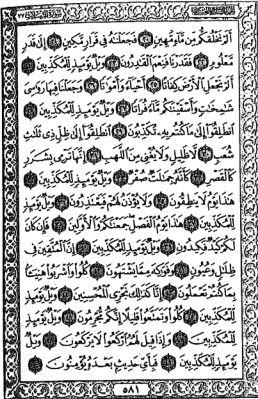 أَلَمْ نَخْلُقكُّم مِّن مَّآءٍ مَّهِينٍ ٢٠ فَجَعَلْنَٰهُ فِى قَرَارٍ مَّكِينٍ ٢١ إِلَىٰ قَدَرٍ
مَّعْلُومٍ ٢٢ فَقَدَرْنَا فَنِعْمَ ٱلْقَٰدِرُونَ ٢٣ وَيْلٌ يَوْمَئِذٍ لِّلْمُكَذِّبِينَ ٢٤
أَلَمْ نَجْعَلِ ٱلْأَرْضَ كِفَاتًا ٢٥ أَحْيَآءً وَأَمْوَٰتًا ٢٦ وَجَعَلْنَا فِيهَا رَوَٰسِىَ
شَٰمِخَٰتٍ وَأَسْقَيْنَٰكُم مَّآءً فُرَاتًا ٢٧ وَيْلٌ يَوْمَئِذٍ لِّلْمُكَذِّبِينَ ٢٨
ٱنطَلِقُوٓا۟ إِلَىٰ مَا كُنتُم بِهِۦ تُكَذِّبُونَ ٢٩ ٱنطَلِقُوٓا۟ إِلَىٰ ظِلٍّ ذِى ثَلَٰثِ
شُعَبٍ ٣٠ لَّا ظَلِيلٍ وَلَا يُغْنِى مِنَ ٱللَّهَبِ ٣١ إِنَّهَا تَرْمِى بِشَرَرٍ
كَٱلْقَصْرِ ٣٢ كَأَنَّهُۥ جِمَٰلَتٌ صُفْرٌ ٣٣ وَيْلٌ يَوْمَئِذٍ لِّلْمُكَذِّبِينَ ٣٤
هَٰذَا يَوْمُ لَا يَنطِقُونَ ٣٥ وَلَا يُؤْذَنُ لَهُمْ فَيَعْتَذِرُونَ ٣٦ وَيْلٌ يَوْمَئِذٍ
لِّلْمُكَذِّبِينَ ٣٧ هَٰذَا يَوْمُ ٱلْفَصْلِ جَمَعْنَٰكُمْ وَٱلْأَوَّلِينَ ٣٨ فَإِن كَانَ
لَكُمْ كَيْدٌ فَكِيدُونِ ٣٩ وَيْلٌ يَوْمَئِذٍ لِّلْمُكَذِّبِينَ ٤٠ إِنَّ ٱلْمُتَّقِينَ فِى
ظِلَٰلٍ وَعُيُونٍ ٤١ وَفَوَٰكِهَ مِمَّا يَشْتَهُونَ ٤٢ كُلُوا۟ وَٱشْرَبُوا۟ هَنِيٓـًٔۢا
بِمَا كُنتُمْ تَعْمَلُونَ ٤٣ إِنَّا كَذَٰلِكَ نَجْزِى ٱلْمُحْسِنِينَ ٤٤ وَيْلٌ يَوْمَئِذٍ
لِّلْمُكَذِّبِينَ ٤٥ كُلُوا۟ وَتَمَتَّعُوا۟ قَلِيلًا إِنَّكُم مُّجْرِمُونَ ٤٦ وَيْلٌ يَوْمَئِذٍ
لِّلْمُكَذِّبِينَ ٤٧ وَإِذَا قِيلَ لَهُمُ ٱرْكَعُوا۟ لَا يَرْكَعُونَ ٤٨ وَيْلٌ
يَوْمَئِذٍ لِّلْمُكَذِّبِينَ ٤٩ فَبِأَىِّ حَدِيثٍۭ بَعْدَهُۥ يُؤْمِنُونَ ٥٠
٥٨١